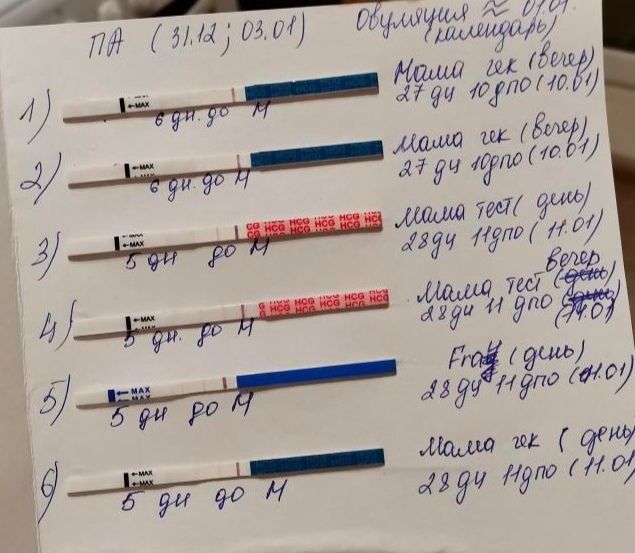 ПА (31.12; 03.01)
Овуляция ≈ 01.01.
(календарь)
1)
←MAX
6 дн. до М
Мама чек (вечер)
27 дц 10дпо (10.01)
2)
←MAX
6 дн. до М
Мама чек (вечер)
27 дц 10дпо (10.01)
3)
←MAX
←MAX
HCG HCG HCG HCG
5 дн до М
Мама тест (день)
28дц 11дпо (11.01)
4)
←MAX
HCG HCG HCG HCG
5 дн. до М
вечер
Мама тест
28дц 11 дпо
(11.01)
5)
← MAX
← MAX
5 дн до М
Frау (день)
28 дц 11дпо (11.01)
6)
←MAX
←MAX
5 дн до М
Мама чек (день)
28 дц 11дпо (11.01)